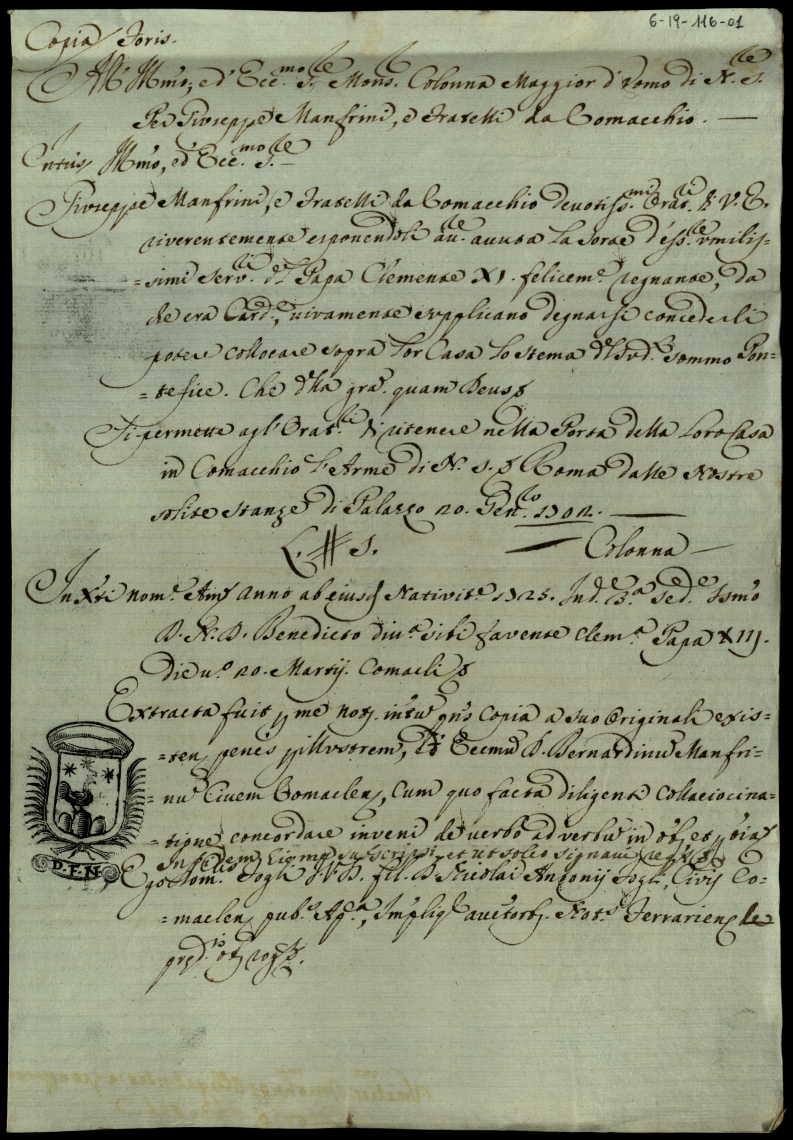 6-19-116-01
Copia Foris.
All' Ill'mo, ed' Ecc.mo S.re Mons. Colonna Maggior d'Uomo di N. S.re
Per Giuseppe Manfrini, e Fratelli da Comacchio. —
Intus, Ill'mo, ed' Ecc.mo S.re —
Giuseppe Manfrini, e Fratelli da Comacchio devotiss.mi Orat.li di V. E.
riverentemente esponendole aver avuta la sorte d'ess.re umilis-
=simi Serv.li del Papa Clemente XI. felicem.e regnante, da
che era Card.le, vivamente supplicano degnarsi concederli
potere collocare sopra Lor Casa lo stema del sud.o Sommo Pon=
=tefice. Che della gra. quam Deus
Si permette agl' Orat.li di ritenere nella Porta della Loro Casa
in Comacchio l'Arme di N. S. Roma dalle Nostre
solite stanze di Palazzo 20. Gen.ro 1702. —
L. # S. — Colonna —
In Xti nom.e Am. anno ab ejusd. Nativit.e 1725. Ind.e 3.a Sed.e SSmo
D. N. D. Benedicto div.a favente Clem.a Papa XIII.
die v.o 20. Martij. Comacli
Extracta fuit p. me Not. copia a suo Originali exis=
=ten. penes Illustrem, et Eccmu' D. Bernardinu' Manfri-
=nu' Civem Comaclen, Cum quo facta diligenti collatiocina=
=tione concordare inveni de verbo ad verbu' in
In quor. fidem subscripsi, et ut soleo signavi
D. F. N.
Ego Fogli fil. D. Nicolai Antonij Fogli, Civis Co=
=maclen, pub.s Ap.a, Imp.li auctorit. Not.s Ferrarien, de
pred.is rog.